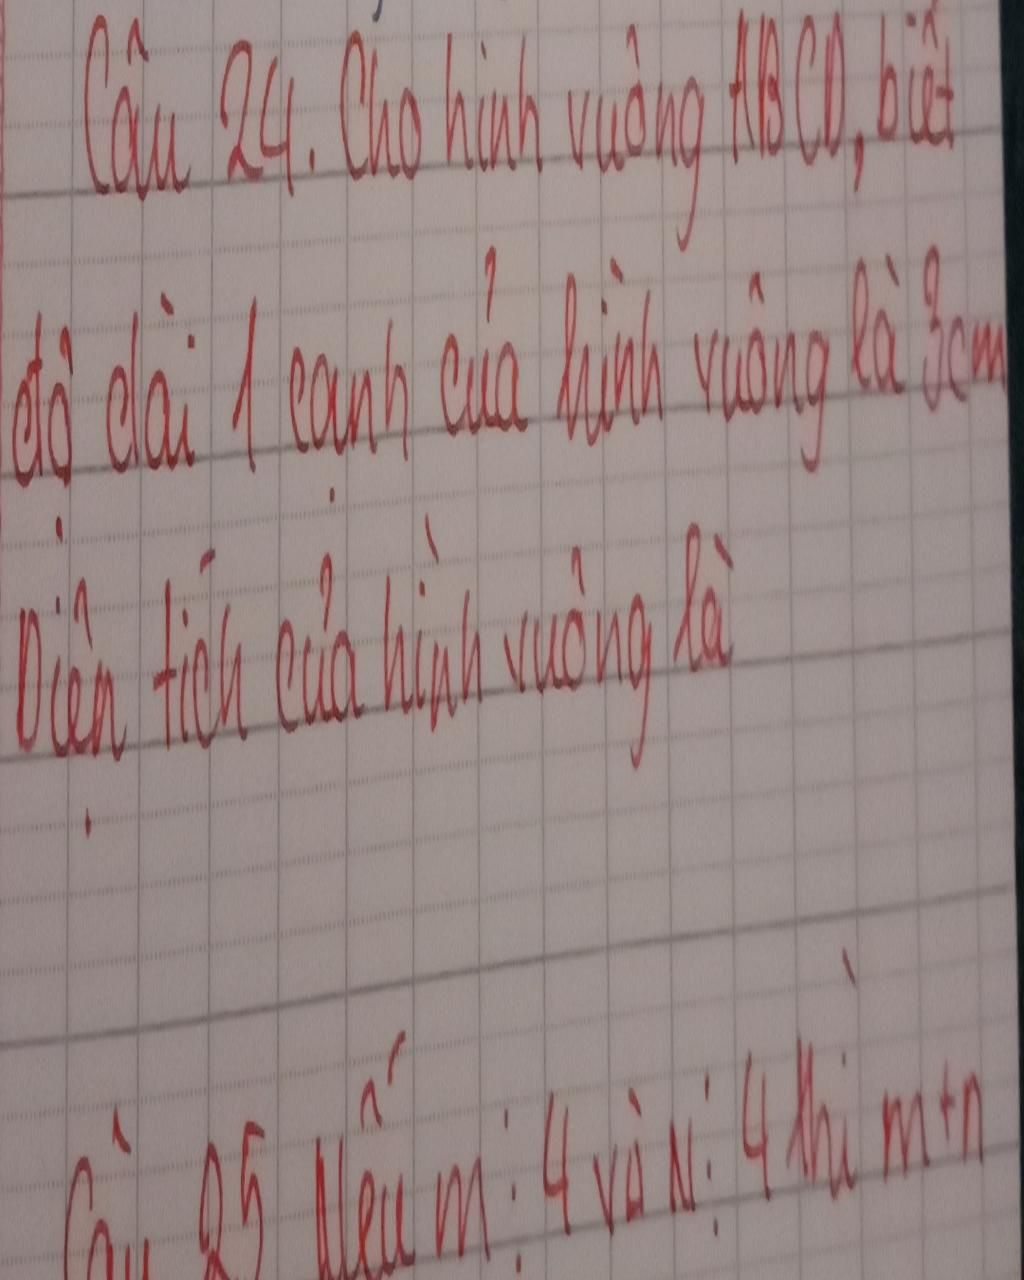 Câu 24. Cho hình vuông ABCD, biết
độ dài 1 cạnh của hình vuông là 3cm
Diện tích của hình vuông là
Câu 25 Nếu m ⋮ 4 và N ⋮ 4 thì m+n